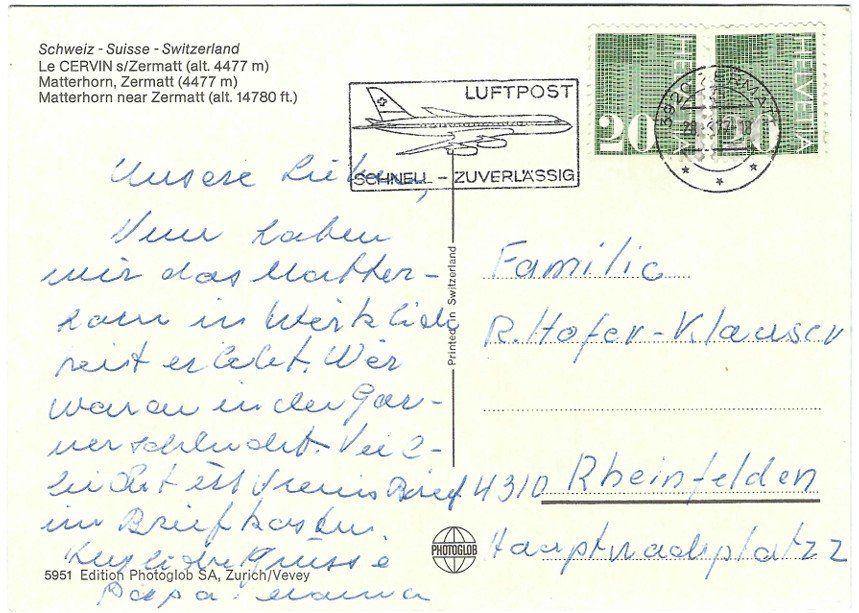 Schweiz - Suisse - Switzerland
Le CERVIN s/Zermatt (alt. 4477 m)
Matterhorn, Zermatt (4477 m)
Matterhorn near Zermatt (alt. 14780 ft.)
LUFTPOST
SCHNELL - ZUVERLÄSSIG
HELVETIA
20
HELVETIA
20
3920 ZERMATT
Unsere Lieben,
Nun haben
wir das Matter-
horn in Wirklich
keit erlebt. Wir
waren in der Gor-
nerschlucht. Viel-
leicht ist Brief
im Briefkasten.
Herzliche Grüsse
Papa Mama
Printed in Switzerland
Familie
R. Hofer-Klauser
4310 Rheinfelden
Hauptwachplatz 2
PHOTOGLOB
5951 Edition Photoglob SA, Zurich/Vevey